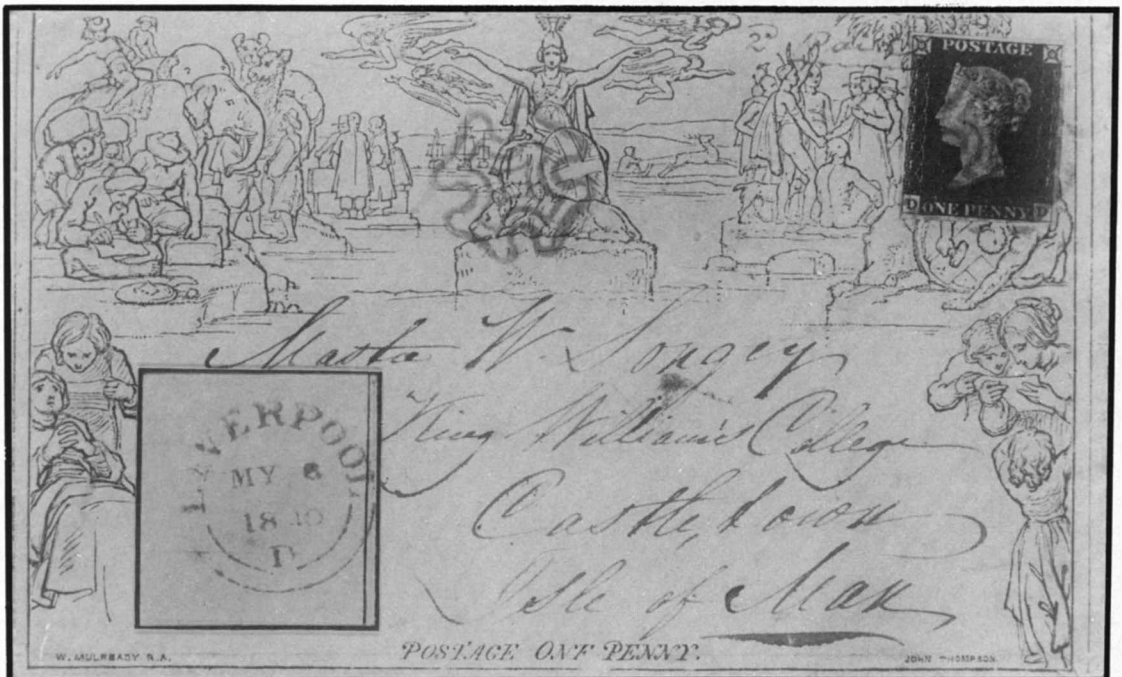 POSTAGE
D ONE PENNY D
Master W. Songey
King William's College
Castletown
Isle of Man
LIVERPOOL
MY 6
1840
D
POSTAGE ONE PENNY.
W. MULREADY R.A.
JOHN THOMPSON.